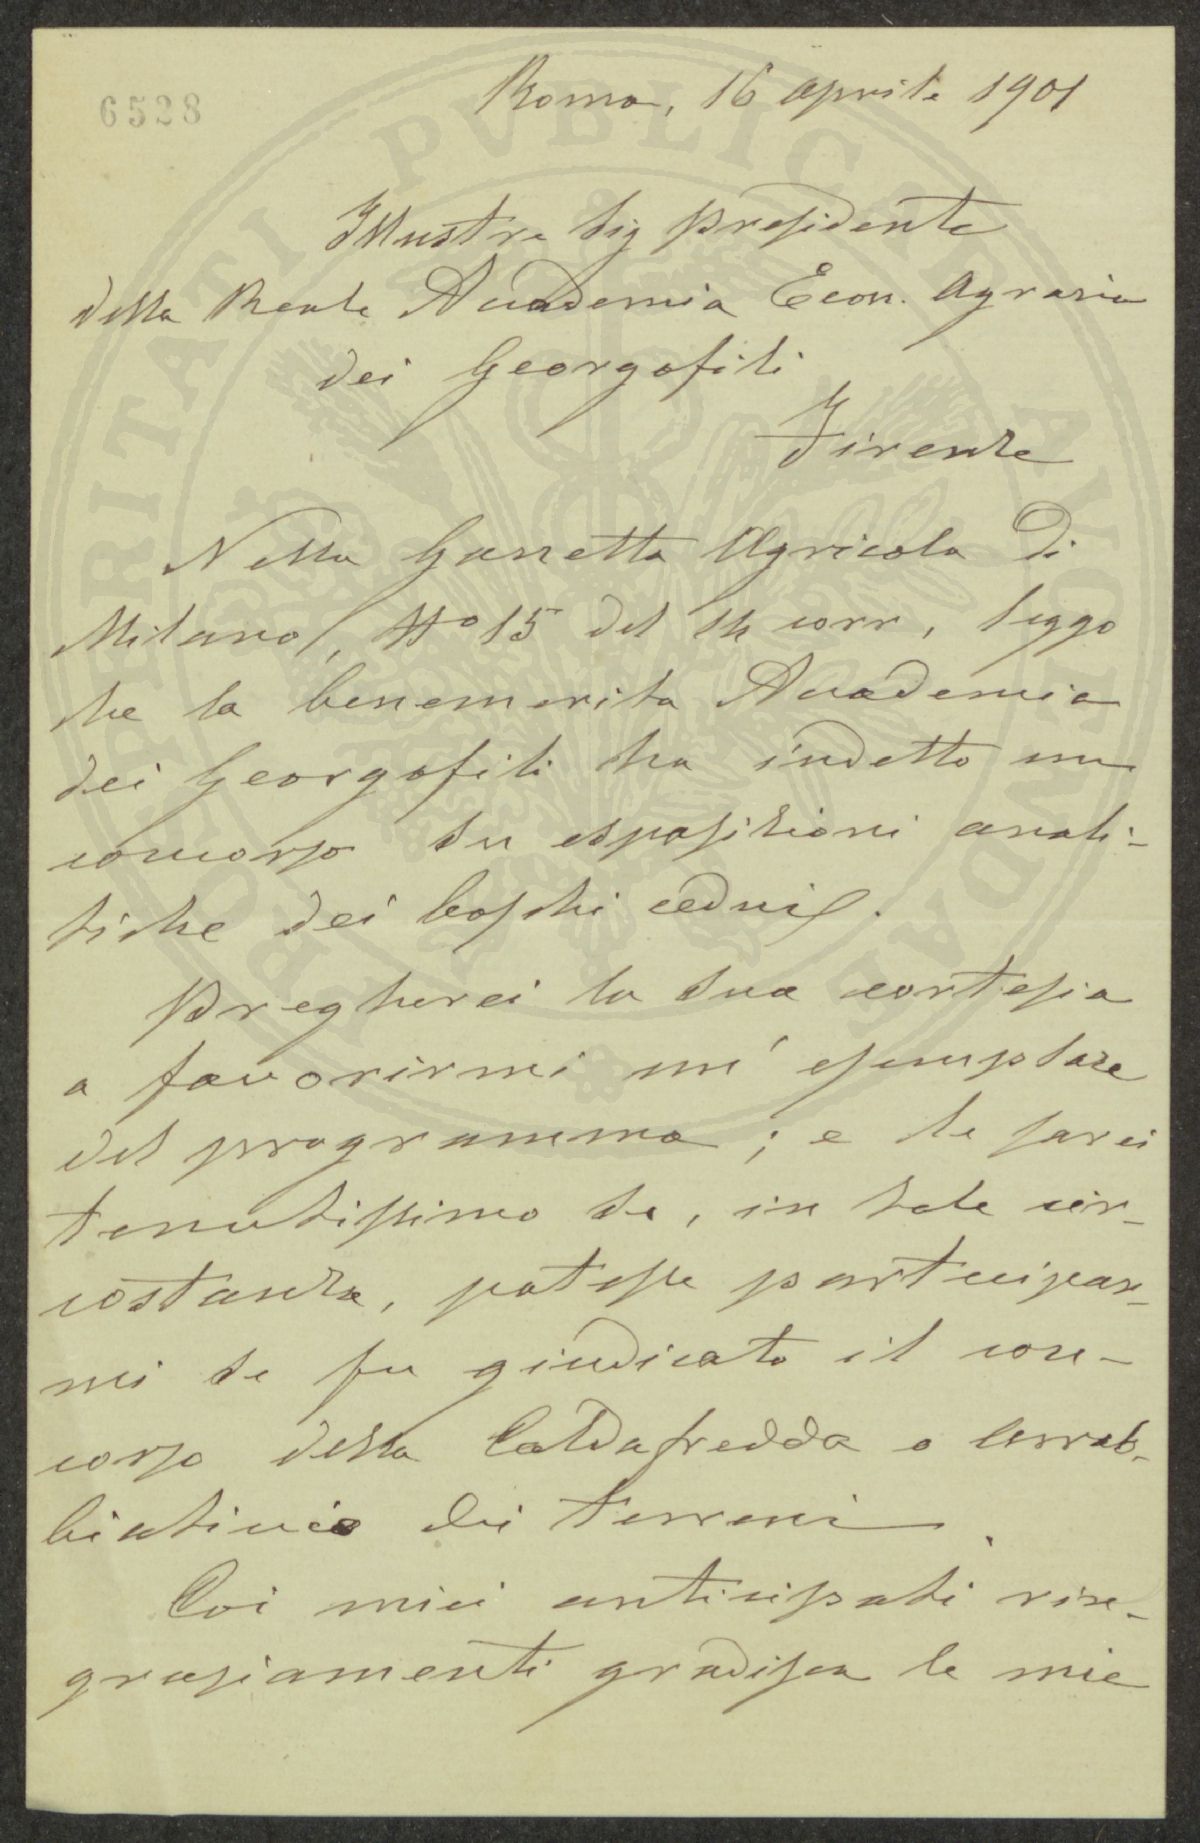 6528
Roma, 16 aprile 1901
Illustre Sig Presidente
della Reale Accademia Econ. Agraria
dei Georgofili
Firenze
Nella Gazzetta Agricola di
Milano, No 15 del 14 corr, leggo
che la benemerita Accademia
dei Georgofili ha indetto un
concorso su esposizioni anali-
tiche dei boschi cedui.
Pregherei la sua cortesia
a favorirmi un' esemplare
del programma; e le sarei
tenutissimo se, in tale cir-
costanza, potesse partecipar-
mi se fu giudicato il con-
corso della Caldafredda o arrab-
biaticcio dei terreni.
Coi miei anticipati rin-
graziamenti gradisca le mie
PROSPERITATI PVBLICAE AVGENDAE